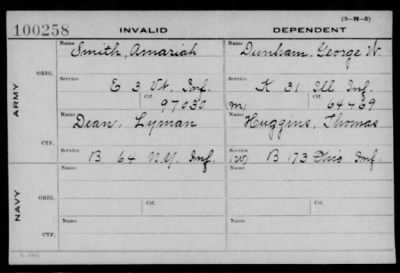 (3-H-5)
100258 INVALID DEPENDENT
ARMY
ORIG.
Name Smith, Amariah
Service E 3 Vt. Inf.
Ctf. 97030
Name Dunham, George W.
Service K 31 Ill Inf.
m Ctf. 64469
CTF.
Name Dean, Lyman
Service B 64 N.Y. Inf.
Name Huggins, Thomas
Service (W) B 173 Ohio Inf.
NAVY
ORIG.
Name
Ctf.
Name
Ctf.
CTF.
Name
Name